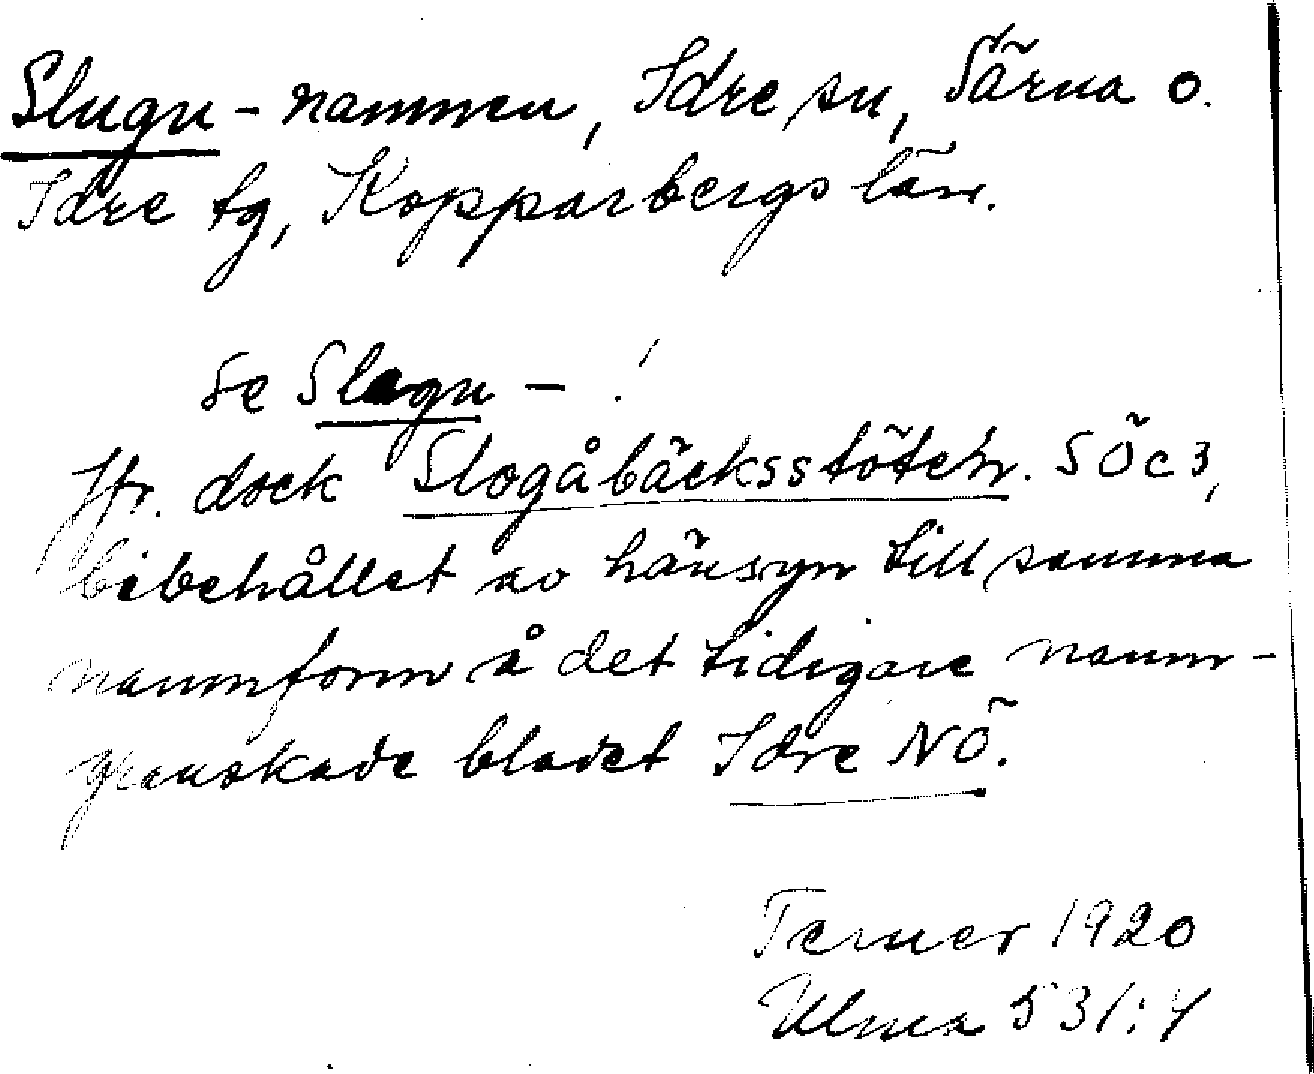 Slugu-namnen, Idre sn, Särna o.
Idre tg, Kopparbergs län.
Se Slagu- !
Jfr. dock Slogåbäcksstöten. SÖc3,
bibehållet av hänsyn till samma
namnform å det tidigare namn-
granskade bladet Idre NÖ.
Terner 1920
Ulma 531:4